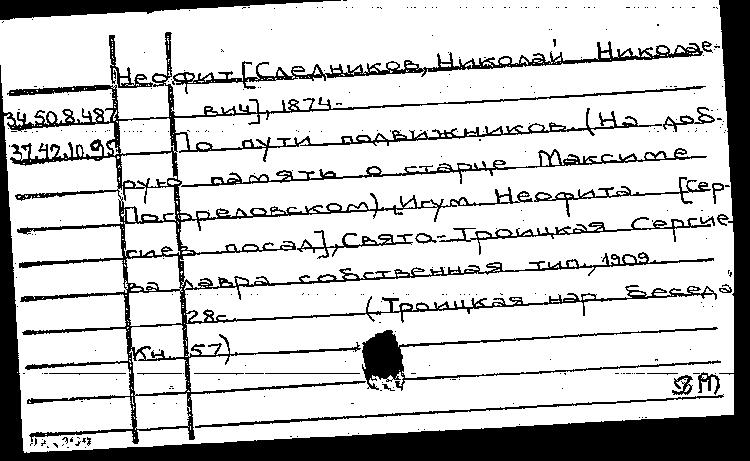 Неофит [Следников, Николай Николае-
34.50.8.487 вич], 1874-
37.42.10.95 По пути подвижников. (На доб-
рую память о старце Максиме
Погореловском). Игум. Неофита. [Сер-
гиев посад], Свято-Троицкая Сергие-
ва лавра собственная тип., 1909.
28с. (Троицкая нар. беседа
Кн. 57).